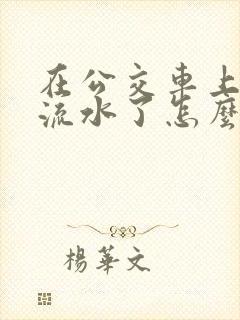 在公交車上
流水了怎麼
楊華文